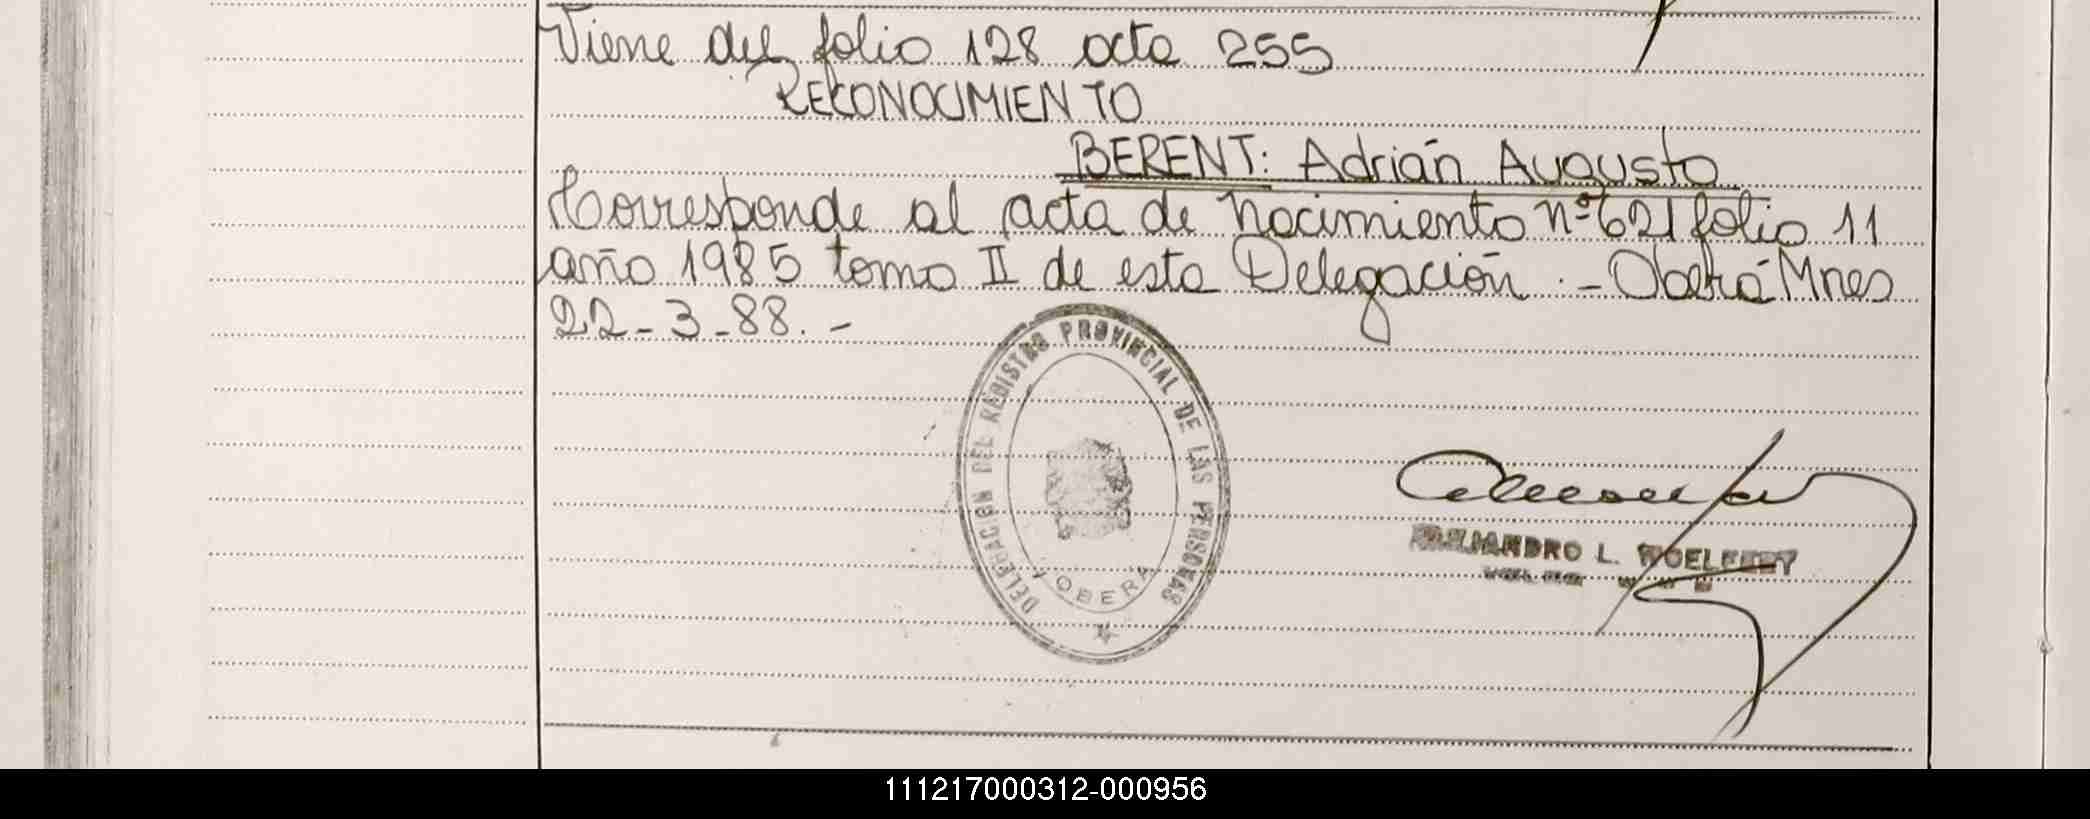 Viene del folio 128 acta 255
RECONOCIMIENTO
BERENT: Adrián Augusto
Corresponde al acta de nacimiento nº 621 folio 11
año 1985 tomo II de esta Delegación.- Oberá Mnes
22-3-88.-
DELEGACION DEL REGISTRO PROVINCIAL DE LAS PERSONAS
OBERA
L.
111217000312-000956